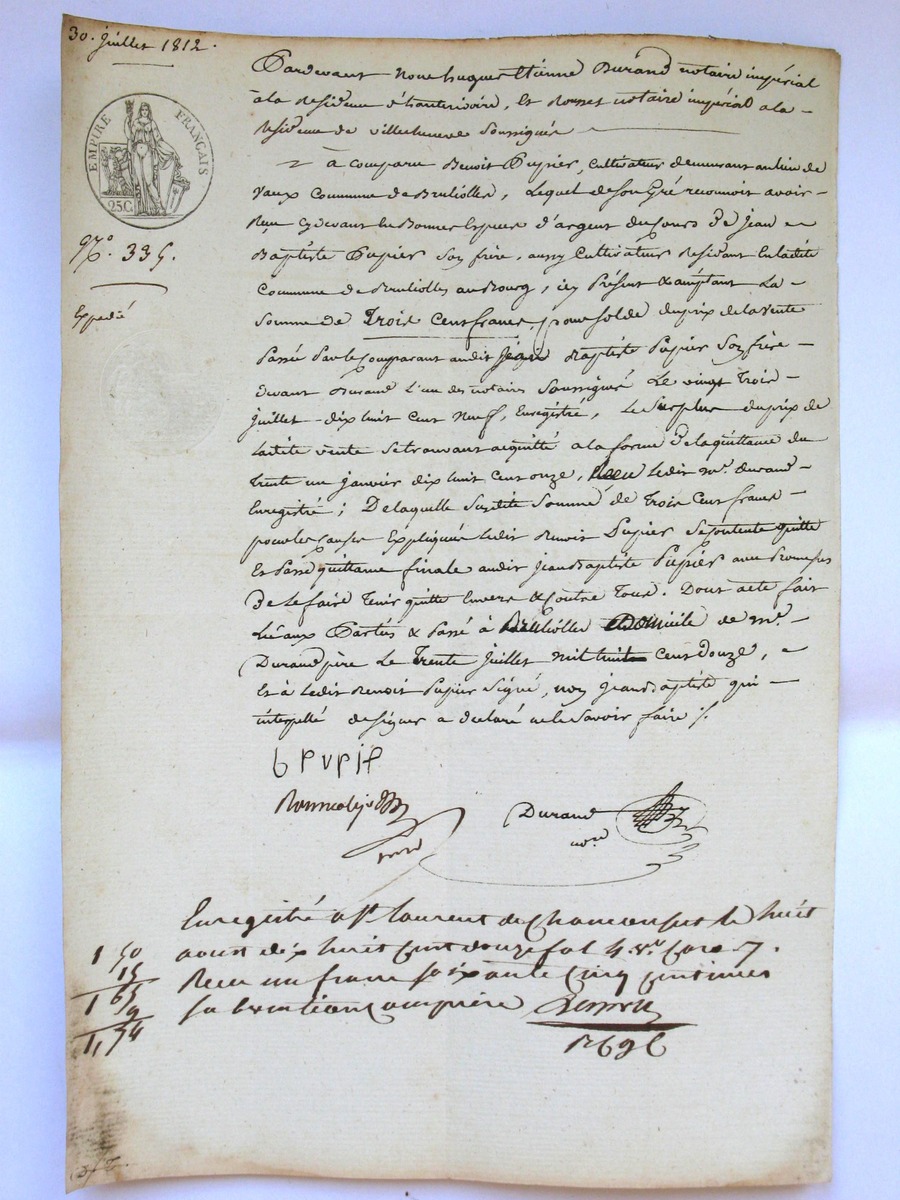 30. juillet 1812.
EMPIRE FRANÇAIS
25C
N.º 335.
Expedié
Pardevant Nous hugues Etienne Durand notaire impérial
à la Residence d'hauterivoire, Et Rousset notaire impérial a la
Residence de villecheneve Soussignés
à comparu Benoit Pupier, Cultivateur demeurant au lieu de
Vaux Commune de Brulliolles, Lequel de Son Gré reconnoit avoir
Reçu Cydevant En Bonnes Especes d'argent du Cours De Jean
Baptiste Pupier Son frère, aussy Cultivateur Residant En ladite
Commune de Brulliolles au Bourg, icy Présent & acceptant La
Somme de Trois Cent francs, pour Solde du prix de la Vente
Passée Par le Comparant audit Jean Baptiste Pupier Son frère
devant Durand L'un des notaires Soussignés Le vingt Trois
juillet dix huit Cent Neuf, Enregistré, Le Surplus du prix de
Ladite vente Se trouvant acquitté a la forme De la quittance du
Trente un janvier dix huit Cent onze, Reçu Ledit M.e durand
Enregistré; De laquelle Susdite Somme de Trois Cent francs
pour les Causes Expliquées Ledit Benoit Pupier Se Contente quitte
Et Passe quittance finale audit Jean Baptiste Pupier avec Promesses
De Le faire Tenir quitte Envers & Contre Tous. Dont acte fait
Lû aux Parties & Passé à Brulliolles Domicile de M.e
Durand père Le Trente Juillet Mil huit Cent Douze,
Et à Ledit Benoit Pupier Signé, non Jean Baptiste qui
interpellé de Signer a declaré ne le Savoir faire ./.
b PVPIE
Durand
no.re
Enregistré a St laurent de Chamousset le huit
aout dix huit Cent douze fol 4 v.o Case 7.
Recu un franc soixante Cinq Centimes
subvention Comprise
1 50
15
1 65
9
1, 74